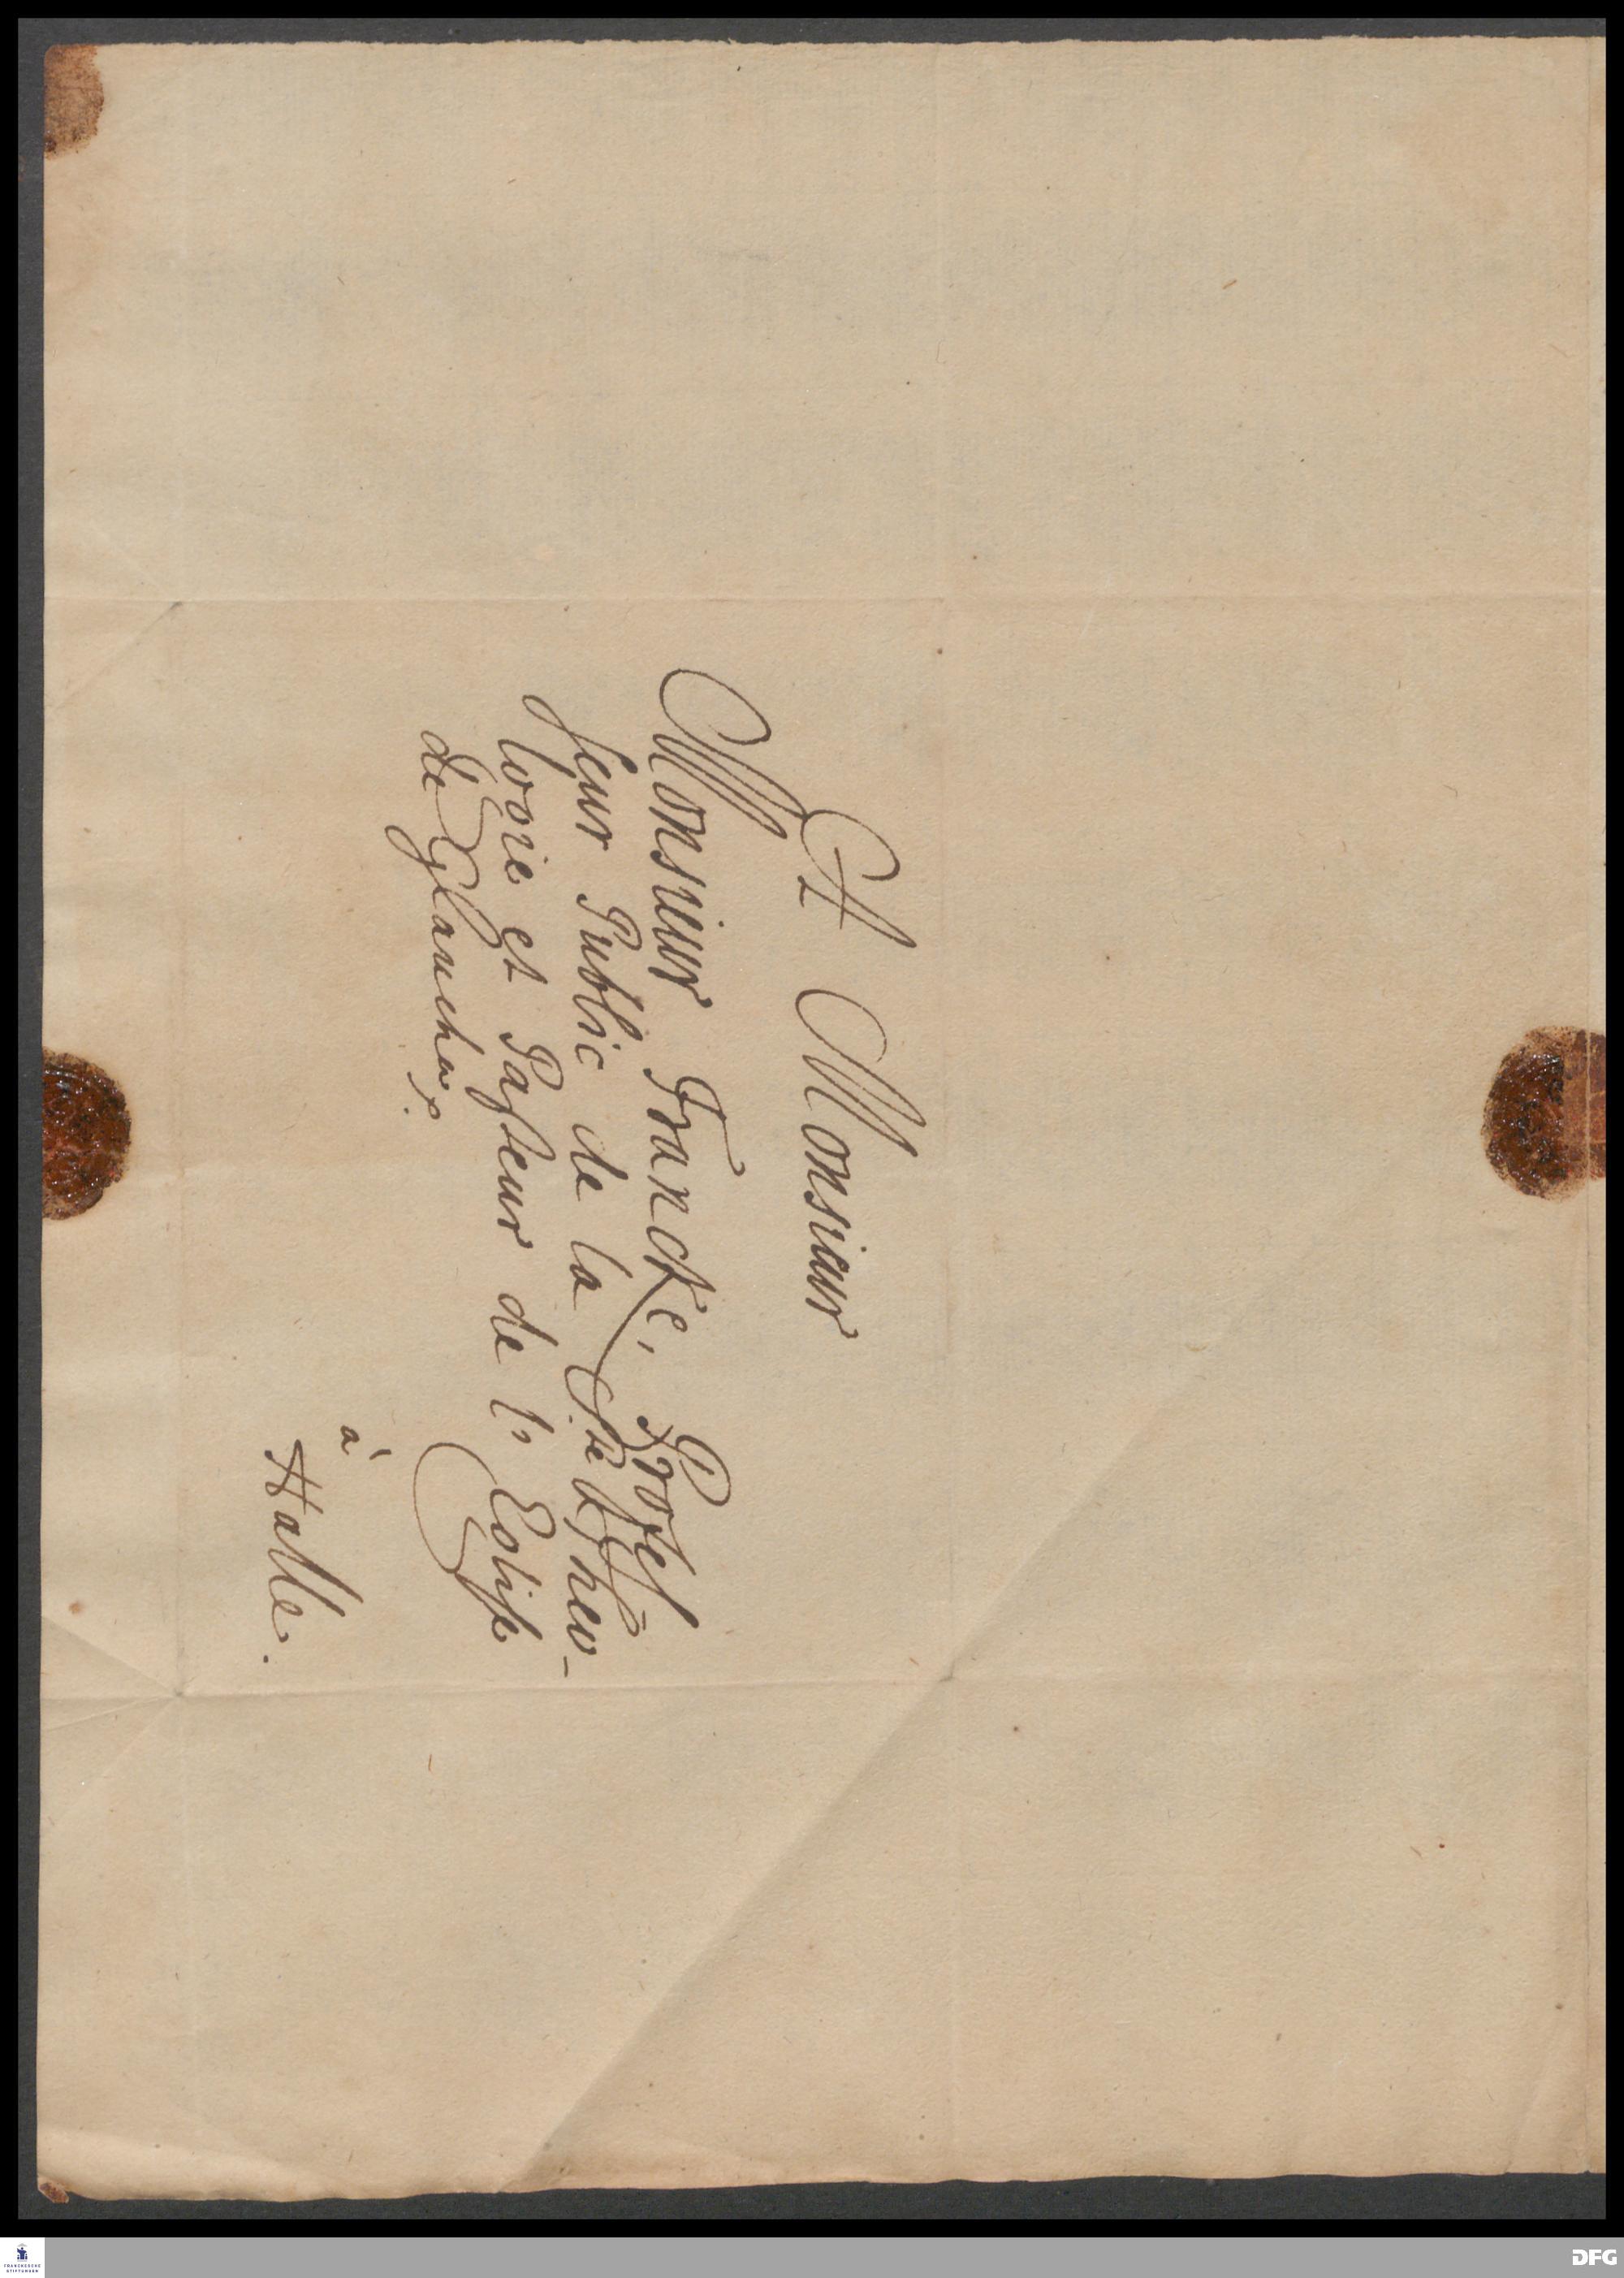 A Monsieur
Monsieur Francke, Profes
seur Public de la Ste Theo-
logie et Pasteur de l' Eglise
de Glaucha p.
à
Halle.
FRANCKESCHE
STIFTUNGEN
DFG